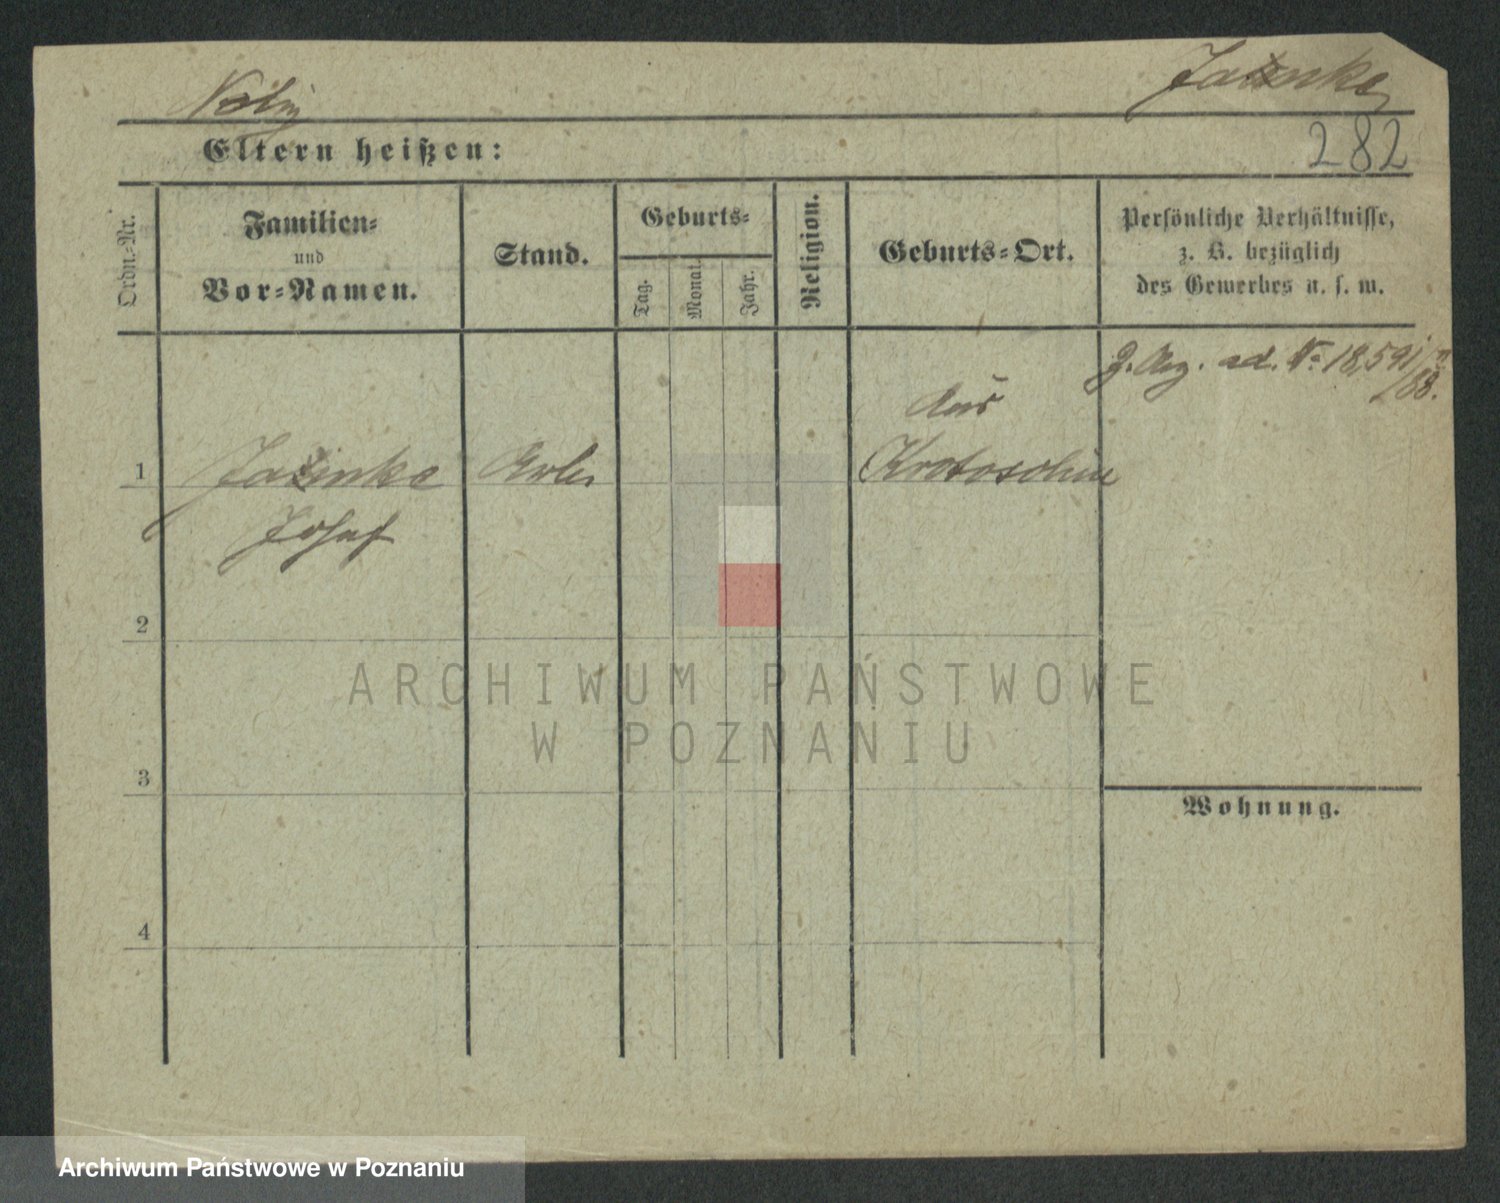 Notiz
282
Eltern heißen:
Ordn.-Nr.
Familien-
und
Vor-Namen.
Stand.
Geburts-
Tag.
Monat.
Jahr.
Religion.
Geburts-Ort.
Persönliche Verhältnisse,
z. B. bezüglich
des Gewerbes u. s. w.
ad. No 18,591
/88.
aus
1
Arb.
Krotoschin
Josef
2
3
4
Wohnung.
ARCHIWUM PAŃSTWOWE
W POZNANIU
Archiwum Państwowe w Poznaniu